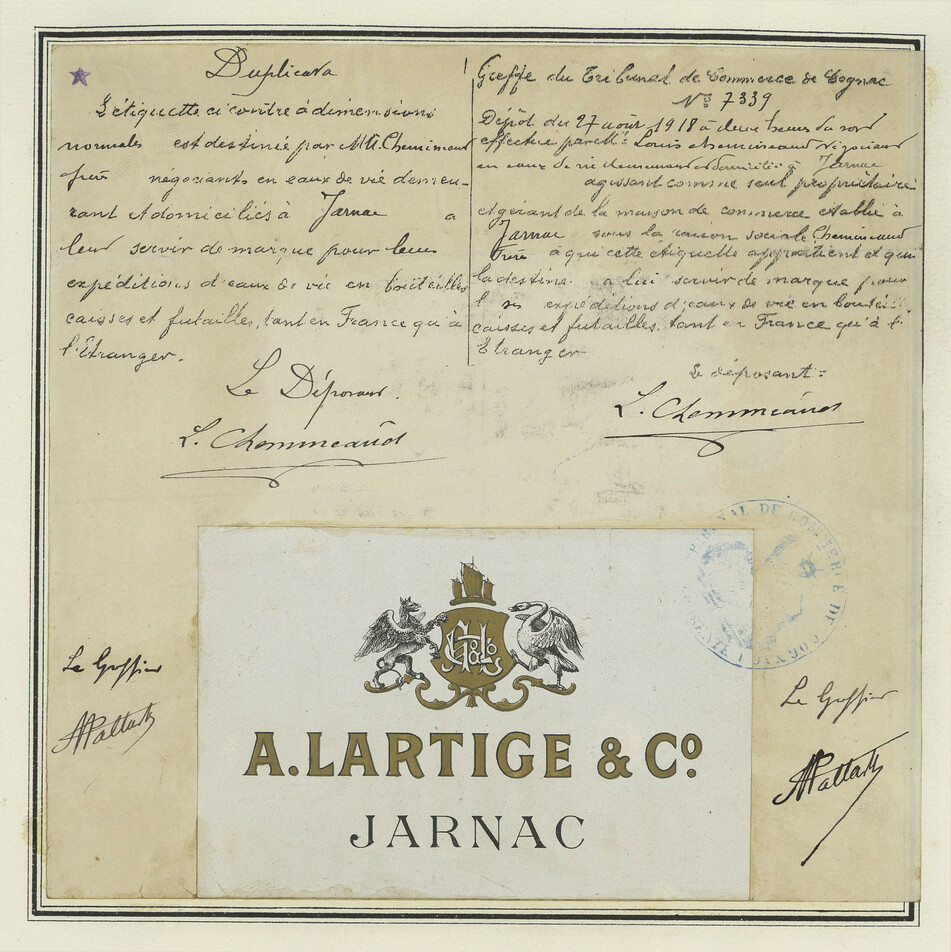 Duplicata
L'étiquette ci contre à dimensions
normales est destinée par MM. Chemineaud
frère négociants en eaux de vie demeu-
rant et domiciliés à Jarnac a
leur servir de marque pour leurs
expéditions d'eaux de vie en bouteilles
caisses et futailles, tant en France qu'à
l'étranger.
Le Déposant.
L. Chemineaud
Greffe du Tribunal de Commerce de Cognac
No 7339
Dépôt du 27 août 1918 à deux heures du soir
effectué par Mr. Louis Chemineaud négociant
en eaux de vie demeurant et domicilié à Jarnac
agissant comme seul propriétaire
et gérant de la maison de commerce établie à
Jarnac sous la raison sociale Chemineaud
frère à qui cette étiquette appartient et qui
la destine à lui servir de marque pour
ses expéditions d'eaux de vie en bouteilles
caisses et futailles, tant en France qu'à l'
Etranger
Le déposant:
L. Chemineaud
TRIBUNAL DE COMMERCE DE COGNAC
Le Greffier
Le Greffier
A. LARTIGE & Co.
JARNAC